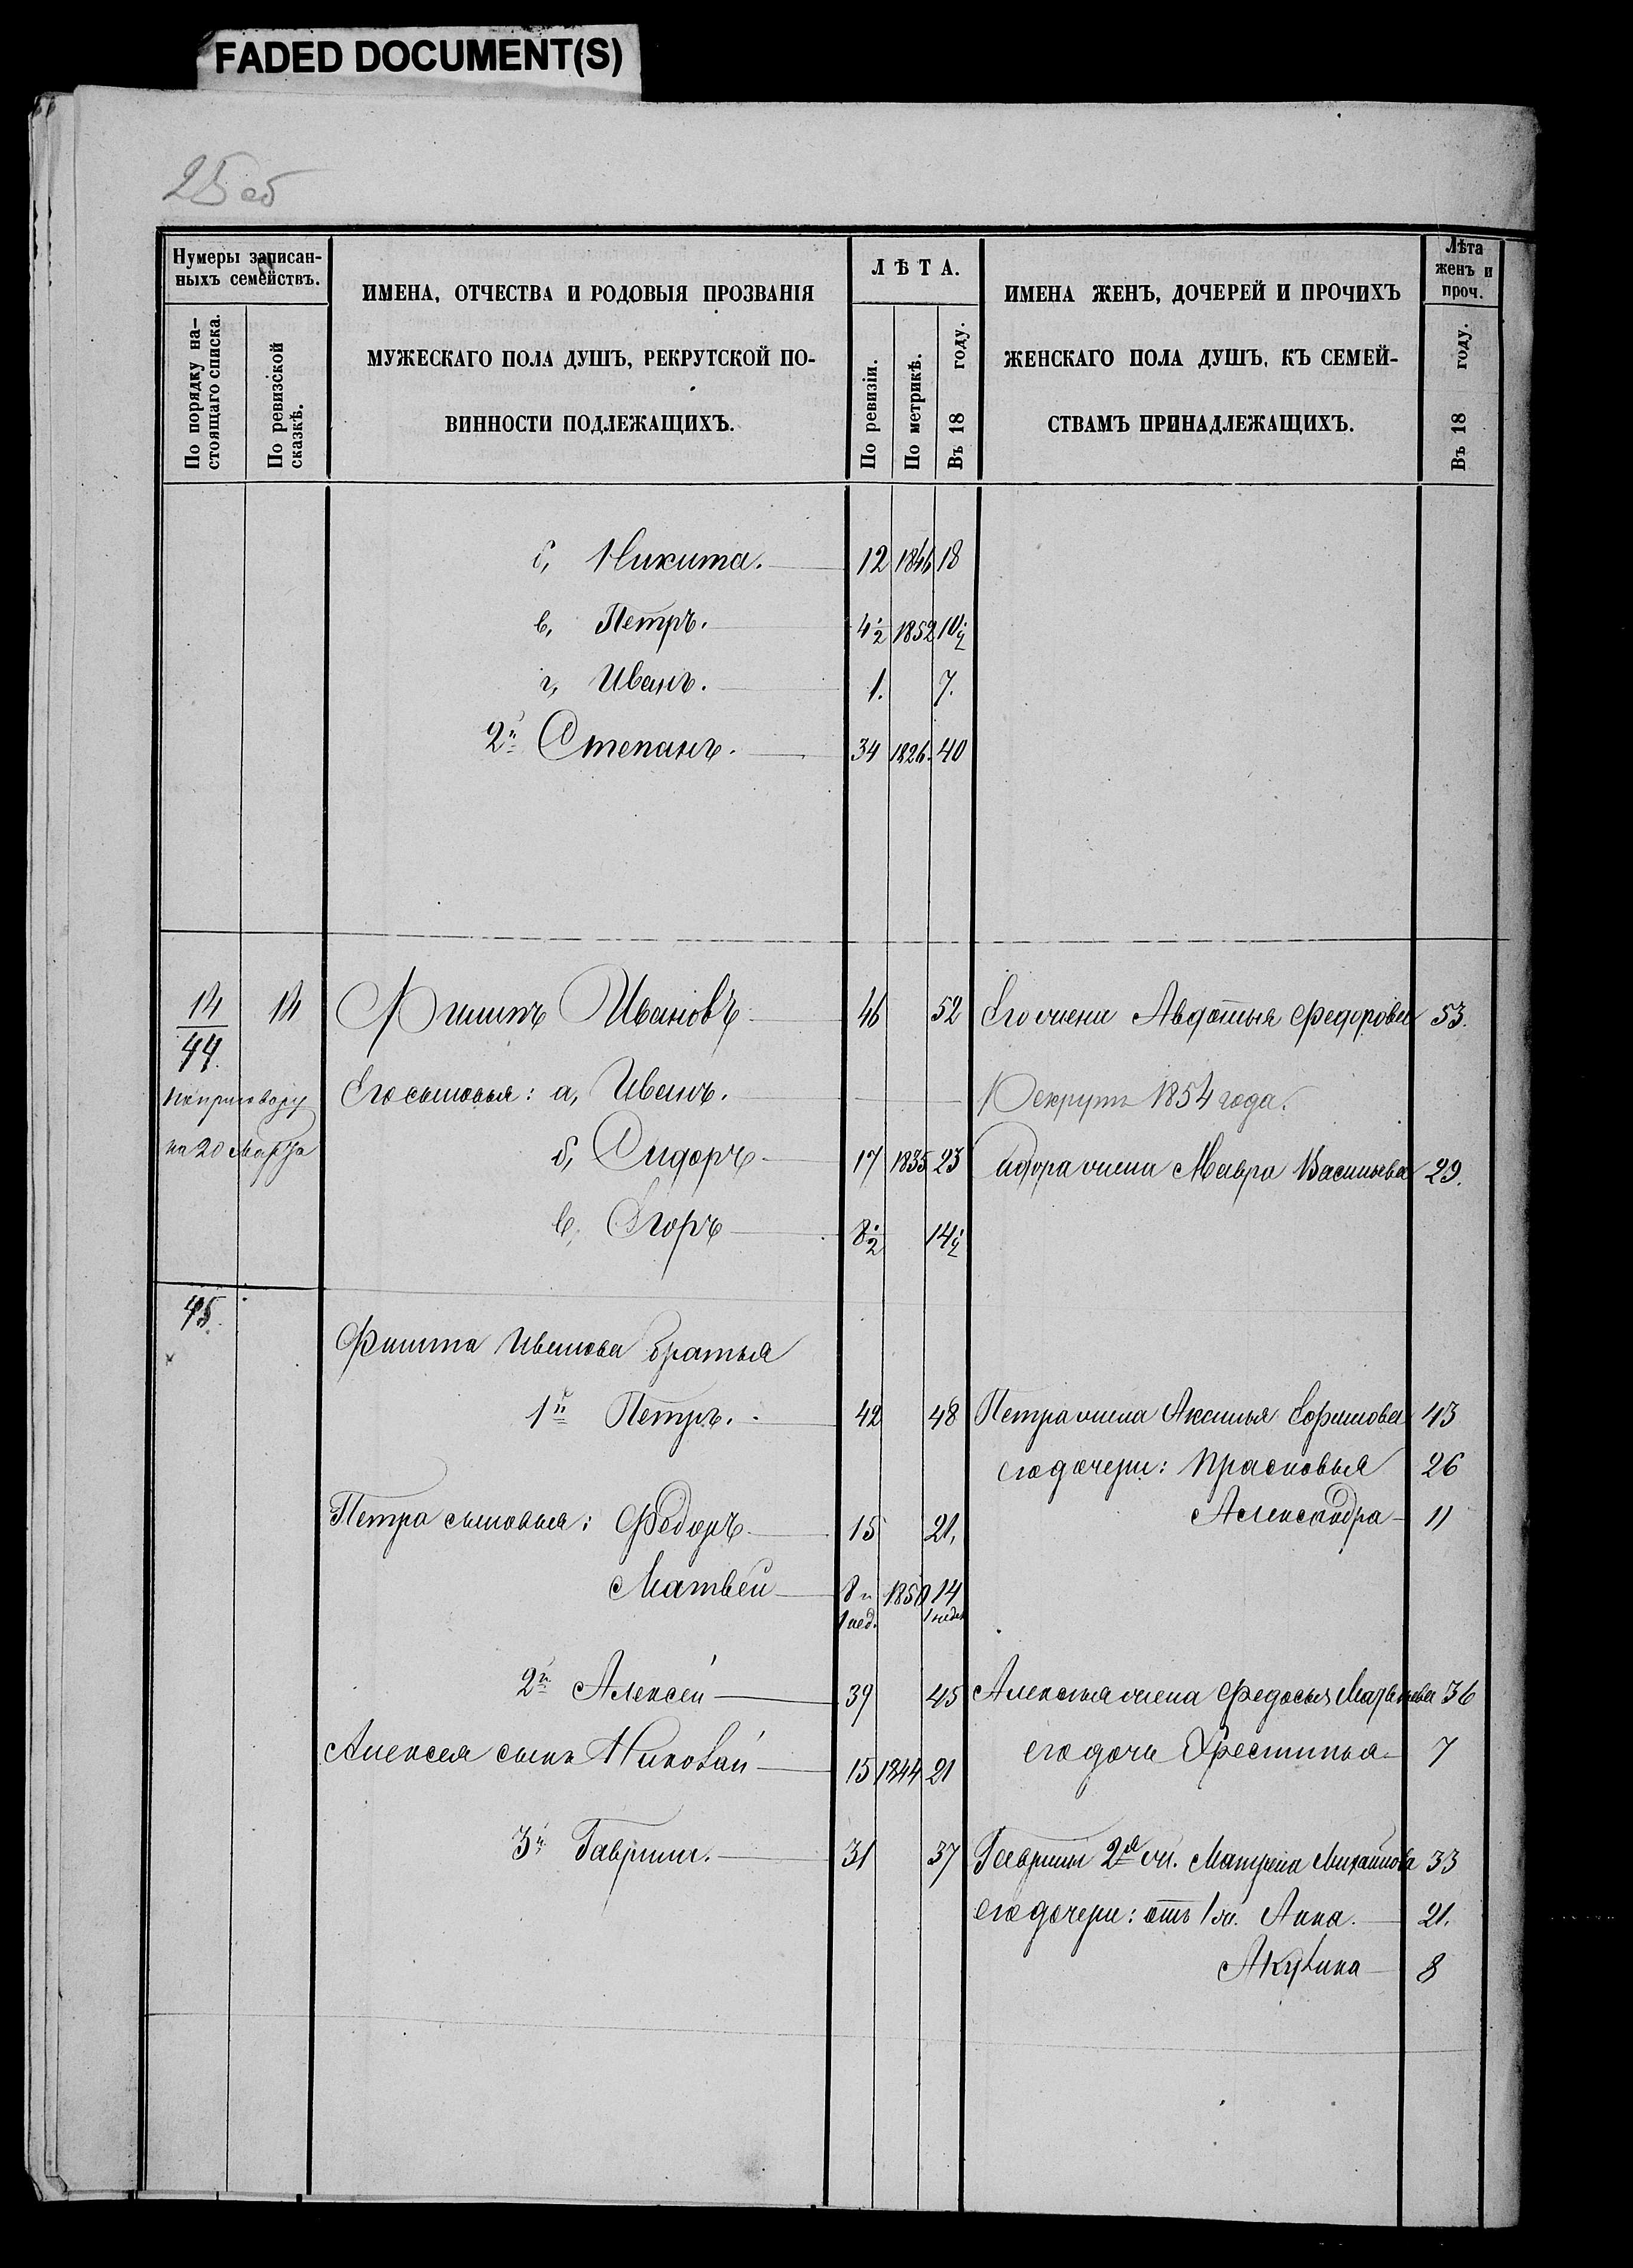 FADED DOCUMENT(S)
25 об
Нумеры записан-
ныхъ семействъ.
По порядку на-
стоящаго списка.
По ревизской
сказкѣ.
ИМЕНА, ОТЧЕСТВА И РОДОВЫЯ ПРОЗВАНІЯ
МУЖЕСКАГО ПОЛА ДУШЪ, РЕКРУТСКОЙ ПО-
ВИННОСТИ ПОДЛЕЖАЩИХЪ.
ЛѢТА.
По ревизіи.
По метрикѣ.
Въ 18 году.
ИМЕНА ЖЕНЪ, ДОЧЕРЕЙ И ПРОЧИХЪ
ЖЕНСКАГО ПОЛА ДУШЪ, КЪ СЕМЕЙ-
СТВАМЪ ПРИНАДЛЕЖАЩИХЪ.
Лѣта
женъ и
проч.
Въ 18 году.
б, Никита. 12 1846 18
в, Петръ. 4½ 1852 10½
г, Иванъ. 1. 7.
2й Степанъ. 34 1826. 40
14 14 Филипъ Ивановъ 46 52 Его жена Авдотья Федорова 53.
44.
по приговору Его сыновья: а, Иванъ. Рекрутъ 1854 года.
на 20 Марта б, Сидоръ 17 1835 23 Сидора жена Мавра Васильева 29.
в, Егоръ 8½ 14½
45.
Филипа Иванова братья
1й Петръ. 42 48 Петра жена Аксинья Ефимова 43
его дочери: Прасковья 26
Петра сыновья: Федоръ 15 21, Александра 11
Матвей 8 и 1850 14
1 нед. 1 недел
2й Алексей 39 45 Алексея жена Федосья Матвеева 36
Алексея сынъ Николай 15 1844 21 его дочь Хрестинья 7
3й Гаврила. 31 37 Гаврилы 2я ж. Матрена Михайлова 33
его дочери: отъ 1 ж. Анна. 21.
Акулина 8